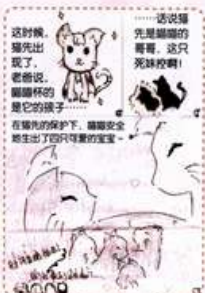 这时候，
猫先出
现了，
老爸说，
喵喵怀的
是它的孩子……
……话说猫
先是喵喵的
哥哥，这只
死妹控啊！
在猫先的保护下，喵喵安全
地生出了四只可爱的宝宝~